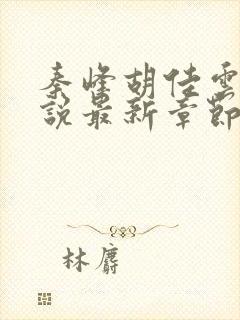 秦峰胡佳雲
說最新章節
林麝